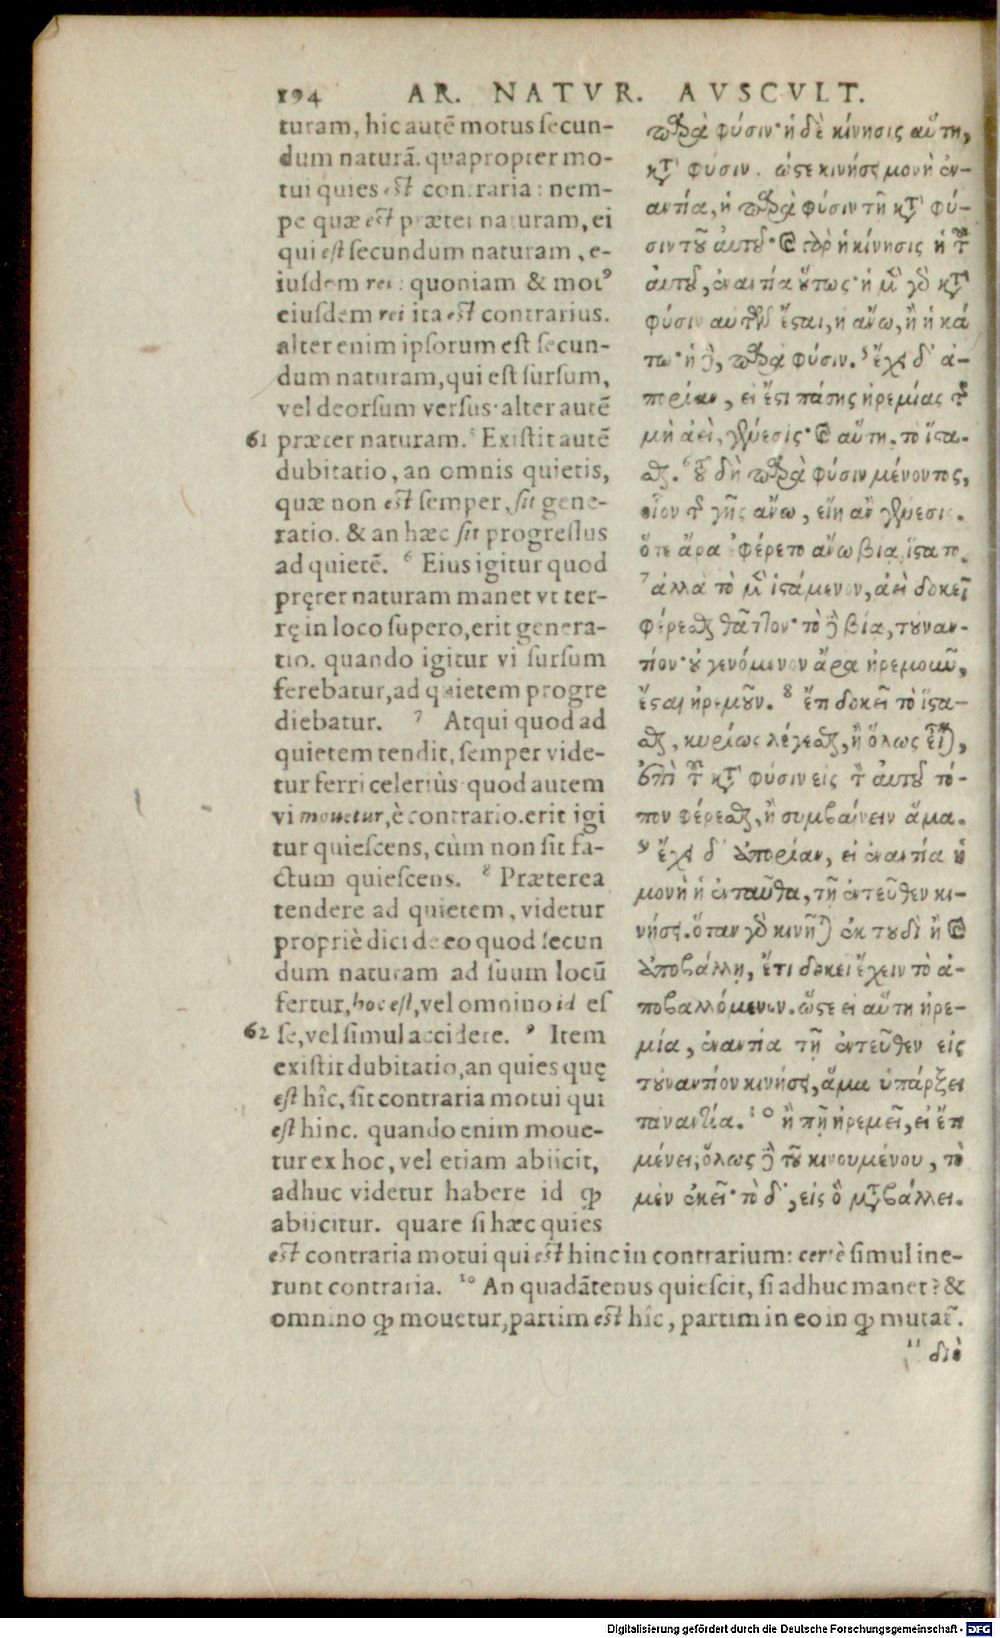 194 AR. NATVR. AVSCVLT.
turam, hic autē motus secun-
dum naturā. quapropter mo-
tui quies est contraria: nem-
pe quæ est præter naturam, ei
qui est secundum naturam, e-
iusdem rei: quoniam & motꝰ
eiusdem rei ita est contrarius.
alter enim ipsorum est secun-
dum naturam, qui est sursum,
vel deorsum versus· alter autē
61 præter naturam. ⁵ Existit autē
dubitatio, an omnis quietis,
quæ non est semper, sit gene-
ratio. & an hæc sit progressus
ad quietē. ⁶ Eius igitur quod
pręter naturam manet vt ter-
rę in loco supero, erit genera-
tio. quando igitur vi sursum
ferebatur, ad quietem progre
diebatur. ⁷ Atqui quod ad
quietem tendit, semper vide-
tur ferri celeriùs· quod autem
vi mouetur, è contrario. erit igi
tur quiescens, cùm non sit fa-
ctum quiescens. ⁸ Præterea
tendere ad quietem, videtur
propriè dici de eo quod secun
dum naturam ad suum locū
fertur, hoc est, vel omnino id es
62 se, vel simul accidere. ⁹ Item
existit dubitatio, an quies quę
est hîc, sit contraria motui qui
est hinc. quando enim moue-
tur ex hoc, vel etiam abiicit,
adhuc videtur habere id ꝙ
abiicitur. quare si hæc quies
est contraria motui qui est hinc in contrarium: certè simul ine-
runt contraria. ¹⁰ An quadātenus quiescit, si adhuc manet? &
omnino ꝙ mouetur, partim est hîc, partim in eo in ꝙ mutat̃.
παρὰ φύσιν· ἡ δὲ κίνησις αὕτη,
κτ̃ φύσιν. ὥστε κινήσει μονὴ ἐν-
αντία, ἡ παρὰ φύσιν τῇ κτ̃ φύ-
σιν τοῦ αὐτοῦ· καὶ γὰρ ἡ κίνησις ἡ τοῦ
αὐτοῦ, ἐναντία οὕτως· ἡ μὲν γὰρ κτ̃
φύσιν αὐτῶν ἔσται, ἡ ἄνω, ἢ ἡ κά
τω· ἡ δὲ, παρὰ φύσιν. ⁵ ἔχει δ' ἀ-
πορίαν, εἰ ἔστι πάσης ἠρεμίας τῆς
μὴ ἀεὶ, γένεσις· καὶ αὕτη. τὸ ἵστα-
σθαι. ⁶ τοῦ δὴ παρὰ φύσιν μένοντος,
οἷον τῆς γῆς ἄνω, εἴη ἂν γένεσις.
ὅτε ἄρα ἐφέρετο ἄνω βίᾳ, ἵστατο.
⁷ ἀλλὰ τὸ μὲν ἱστάμενον, ἀεὶ δοκεῖ
φέρεσθαι θᾶττον· τὸ δὲ βίᾳ, τοὐναν-
τίον· οὐ γενόμενον ἄρα ἠρεμοῦν,
ἔσται ἠρεμοῦν. ⁸ ἔτι δοκεῖ τὸ ἵστα-
σθαι, κυρίως λέγεσθαι, ἢ ὅλως εἶναι,
ἐπὶ τοῦ κτ̃ φύσιν εἰς τὸν αὐτοῦ τό-
πον φέρεσθαι, ἢ συμβαίνειν ἅμα.
⁹ ἔχει δ' ἀπορίαν, εἰ ἐναντία ἡ
μονὴ ἡ ἐνταῦθα, τῇ ἐντεῦθεν κι-
νήσει. ὅταν γὰρ κινῆται ἐκ τουδὶ ἢ καὶ
ἀποβάλλῃ, ἔτι δοκεῖ ἔχειν τὸ ἀ-
ποβαλλόμενον. ὥστε εἰ αὕτη ἠρε-
μία, ἐναντία τῇ ἐντεῦθεν εἰς
τοὐναντίον κινήσει, ἅμα ὑπάρξει
τἀναντία. ¹⁰ ἢ πῇ ἠρεμεῖ, εἰ ἔτι
μένει; ὅλως δὲ τοῦ κινουμένου, τὸ
μὲν ἐκεῖ· τὸ δ', εἰς ὃ μεταβάλλει.
¹¹ διὸ
Digitalisierung gefördert durch die Deutsche Forschungsgemeinschaft - DFG